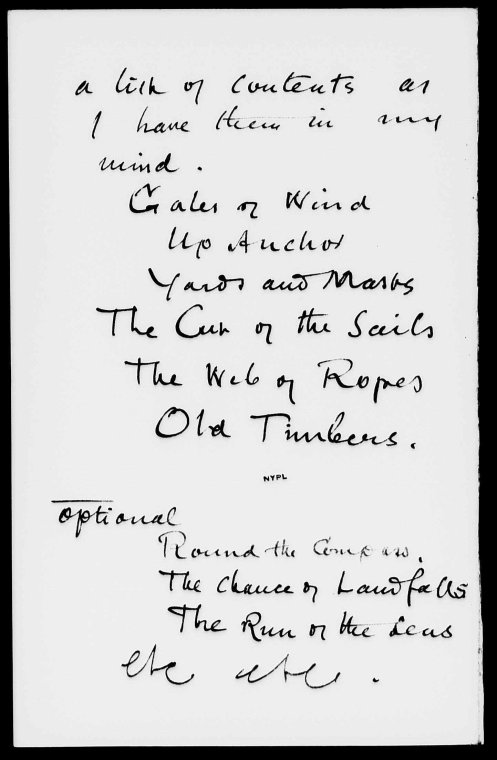 a list of contents as
I have them in my
mind.
Gales of Wind
Up Anchor
Yards and Masts
The Cut of the Sails
The Web of Ropes
Old Timbers.
NYPL
optional
Round the Compass.
The Chance of Landfalls
The Run of the Seas
etc etc.